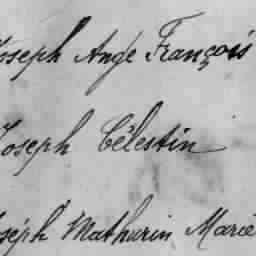 Joseph Ange François
Joseph Célestin
Joseph Mathurin Marie